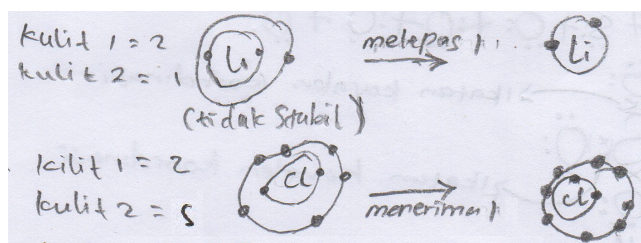 kulit 1 = 2
kulit 2 = 1
Li
melepas 1
Li
(tidak stabil)
kilit 1 = 2
kulit 2 = 5
Cl
menerima 1
Cl